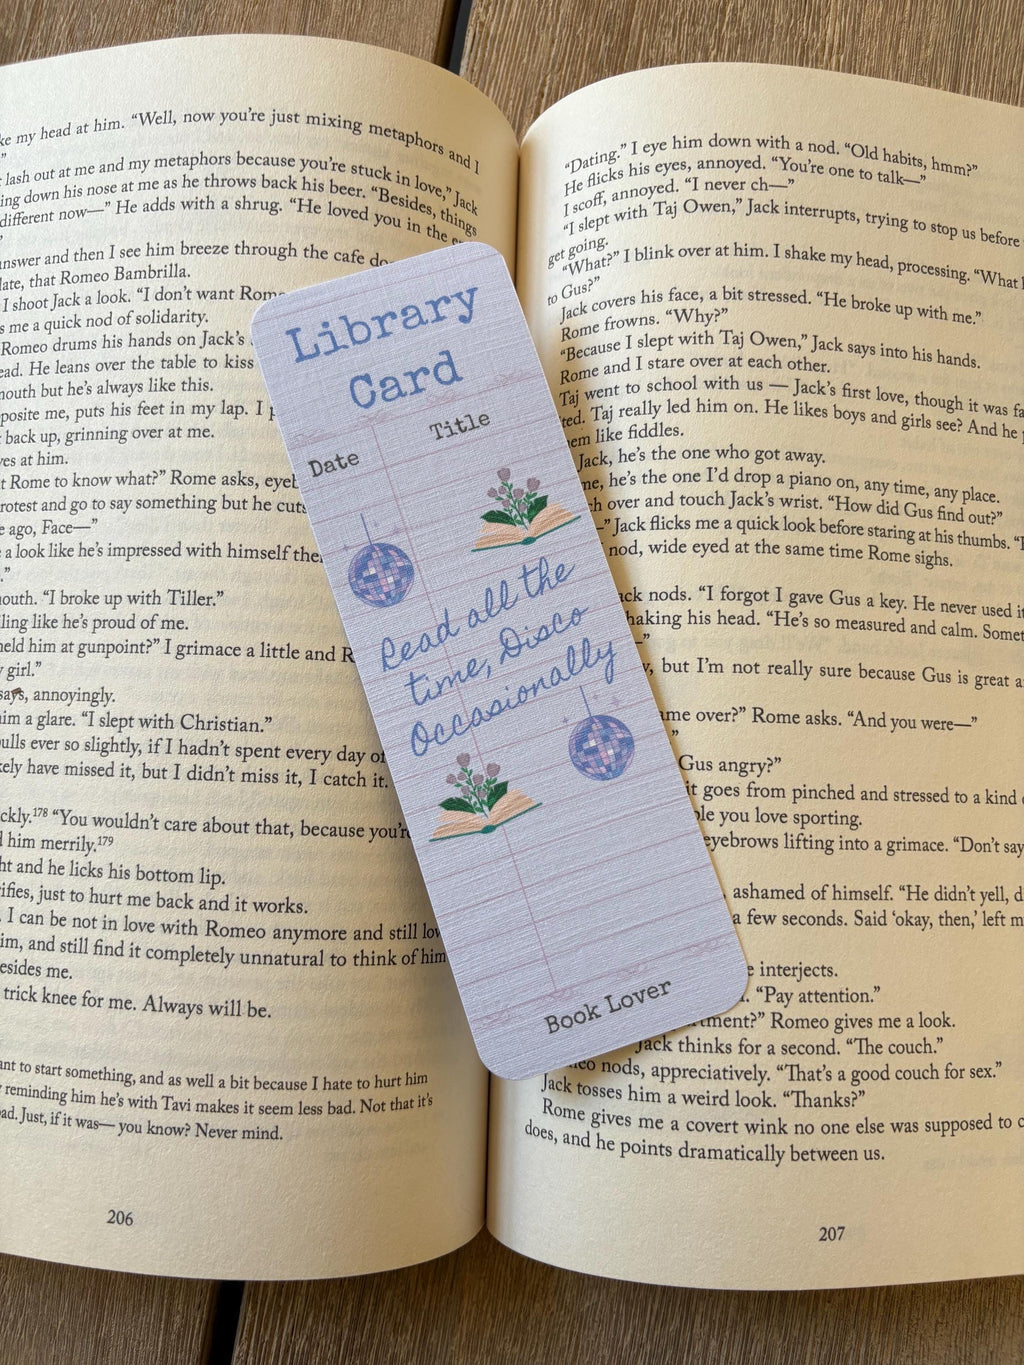 ke my head at him. “Well, now you’re just mixing metaphors and I
”
lash out at me and my metaphors because you’re stuck in love,” Jack
ing down his nose at me as he throws back his beer. “Besides, things
different now—” He adds with a shrug. “He loved you in the
”
answer and then I see him breeze through the cafe
late, that Romeo Bambrilla.
I shoot Jack a look. “I don’t want
s me a quick nod of solidarity.
Romeo drums his hands on Jack’s
ead. He leans over the table to kiss
mouth but he’s always like this.
posite me, puts his feet in my lap. I
back up, grinning over at me.
es at him.
t Rome to know what?” Rome asks,
rotest and go to say something but he cuts
e ago, Face—”
a look like he’s impressed with himself
.”
outh. “I broke up with Tiller.”
ling like he’s proud of me.
held him at gunpoint?” I grimace a little and R
girl.”
says, annoyingly.
im a glare. “I slept with Christian.”
ulls ever so slightly, if I hadn’t spent every day of
ely have missed it, but I didn’t miss it, I catch it.
ckly.¹⁷⁸ “You wouldn’t care about that, because you’re
him merrily.¹⁷⁹
ht and he licks his bottom lip.
ifies, just to hurt me back and it works.
I can be not in love with Romeo anymore and still lov
im, and still find it completely unnatural to think of him
esides me.
trick knee for me. Always will be.
ant to start something, and as well a bit because I hate to hurt him
reminding him he’s with Tavi makes it seem less bad. Not that it’s
ad. Just, if it was— you know? Never mind.
206
Library
Card
Date
Title
Read all the
time, Disco
Occasionally
Book Lover
“Dating.” I eye him down with a nod. “Old habits, hmm?”
He flicks his eyes, annoyed. “You’re one to talk—”
I scoff, annoyed. “I never ch—”
“I slept with Taj Owen,” Jack interrupts, trying to stop us before
get going.
“What?” I blink over at him. I shake my head, processing. “What
to Gus?”
Jack covers his face, a bit stressed. “He broke up with me.”
Rome frowns. “Why?”
“Because I slept with Taj Owen,” Jack says into his hands.
Rome and I stare over at each other.
Taj went to school with us — Jack’s first love, though it was
ted. Taj really led him on. He likes boys and girls see? And he
em like fiddles.
Jack, he’s the one who got away.
me, he’s the one I’d drop a piano on, any time, any place.
ch over and touch Jack’s wrist. “How did Gus find out?”
—” Jack flicks me a quick look before staring at his thumbs.
nod, wide eyed at the same time Rome sighs.
ck nods. “I forgot I gave Gus a key. He never used
haking his head. “He’s so measured and calm.
—”
but I’m not really sure because Gus is great
me over?” Rome asks. “And you were—”
”
Gus angry?”
it goes from pinched and stressed to a kind
ple you love sporting.
eyebrows lifting into a grimace. “Don’t say
ashamed of himself. “He didn’t yell,
a few seconds. Said ‘okay, then,’ left
interjects.
“Pay attention.”
rtment?” Romeo gives me a look.
Jack thinks for a second. “The couch.”
eo nods, appreciatively. “That’s a good couch for sex.”
Jack tosses him a weird look. “Thanks?”
Rome gives me a covert wink no one else was supposed to
does, and he points dramatically between us.
207